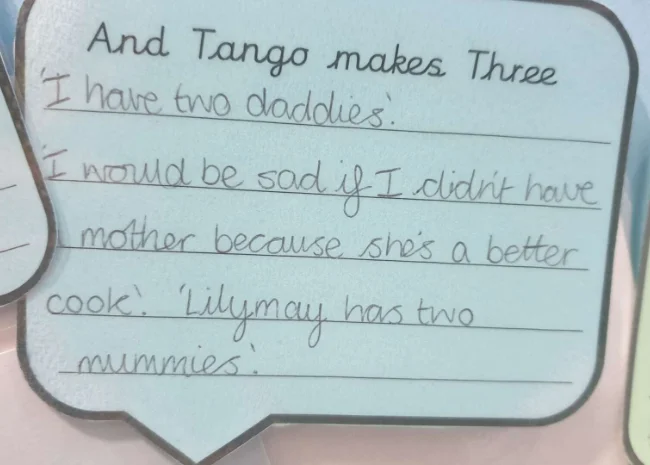 And Tango makes Three
'I have two daddies'.
'I would be sad if I didn't have
mother because she's a better
cook'. 'Lilymay has two
mummies'.